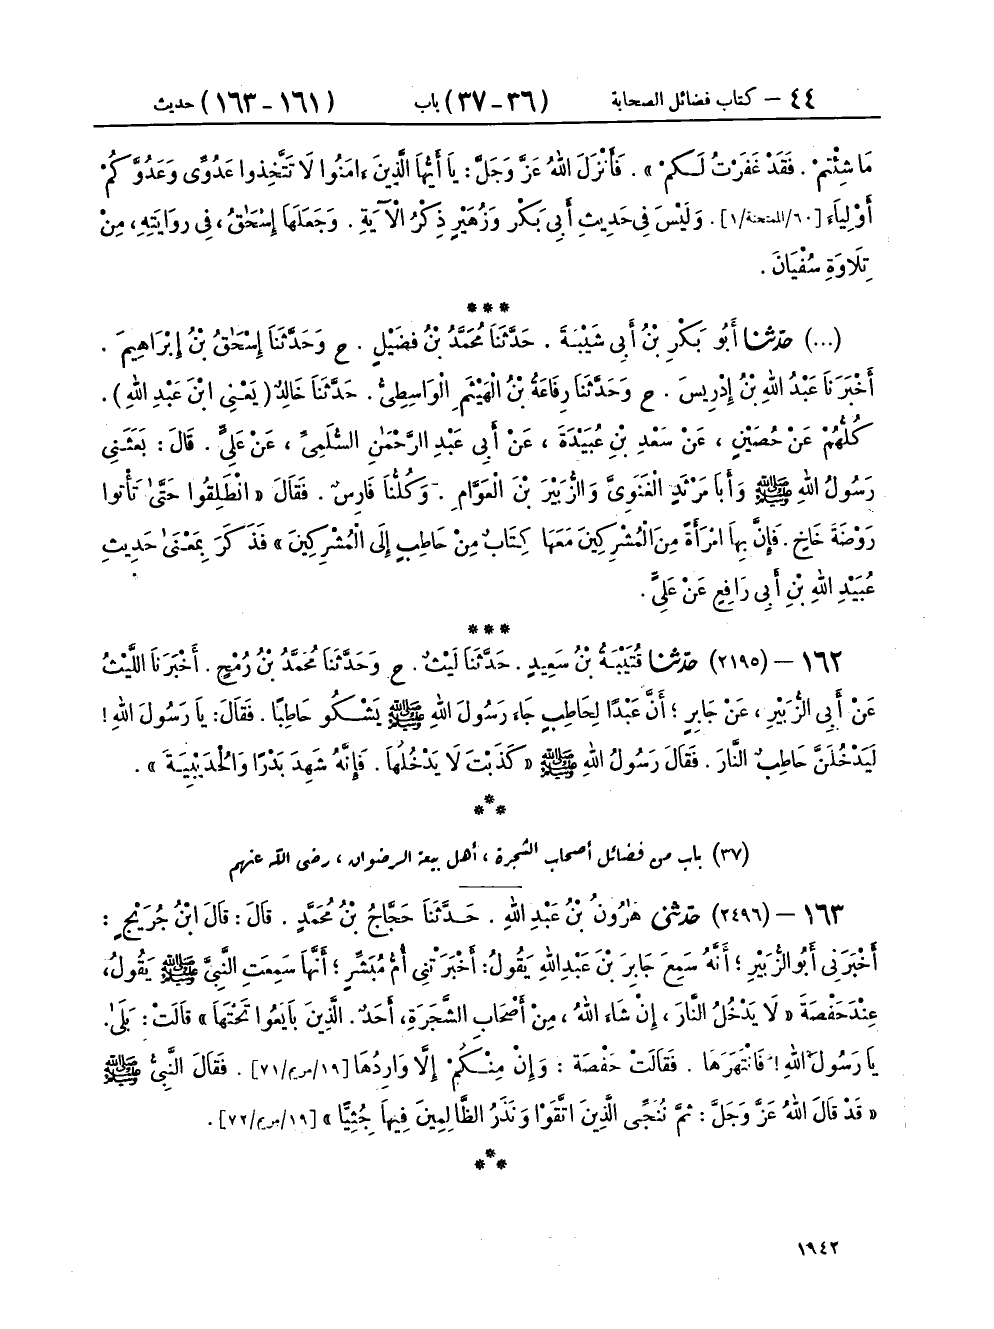 ٤٤ – كتاب فضائل الصحابة (٣٦-٣٧) باب (١٦١-١٦٣) حديث
مَا شِئْتُمْ . فَقَدْ غَفَرْتُ لَكُمْ » . فَأَنْزَلَ اللهُ عَزَّ وَجَلَّ : يَا أَيُّهَا الَّذِينَ ءَامَنُوا لَا تَتَّخِذوا عَدُوِّى وَعَدُوَّكُمْ
أَوْلِيَاءَ [٦٠/الممتحنة/١] . وَلَيْسَ فِى حَدِيثِ أَبِى بَكْرٍ وَزُهَيْرٍ ذِكْرُ الْآيَةِ . وَجَعَلَهَا إِسْحَٰقُ ، فِى رِوَايَتِهِ ، مِنْ
تِلَاوَةِ سُفْيَانَ .
***
(...) حدّثنا أَبُو بَكْرِ بْنُ أَبِى شَيْبَةَ . حَدَّثَنَا مُحَمَّدُ بْنُ فُضَيْلٍ . ح وَحَدَّثَنَا إِسْحَٰقُ بْنُ إِبْرَاهِيمَ .
أَخْبَرَنَا عَبْدُ اللهِ بْنُ إِدْرِيسَ . ح وَحَدَّثَنَا رِفَاعَةُ بْنُ الْهَيْثَمِ الْوَاسِطِىُّ . حَدَّثَنَا خَالِدٌ ( يَعْنِى ابْنَ عَبْدِ اللهِ ) .
كُلُّهُمْ عَنْ حُصَيْنٍ ، عَنْ سَعْدِ بْنِ عُبَيْدَةَ ، عَنْ أَبِى عَبْدِ الرَّحْمَٰنِ السُّلَمِىِّ ، عَنْ عَلِىٍّ . قَالَ : بَعَثَنِى
رَسُولُ اللهِ ﷺ وَأَبَا مَرْثَدٍ الْغَنَوِىَّ وَالزُّبَيْرَ بْنَ الْعَوَّامِ . وَكُلُّنَا فَارِسٌ . فَقَالَ « انْطَلِقُوا حَتَّىٰ تَأْتُوا
رَوْضَةَ خَاخٍ . فَإِنَّ بِهَا امْرَأَةً مِنَ الْمُشْرِكِينَ مَعَهَا كِتَابٌ مِنْ حَاطِبٍ إِلَى الْمُشْرِكِينَ » فَذَكَرَ بِمَعْنَىٰ حَدِيثِ
عُبَيْدِ اللهِ بْنِ أَبِى رَافِعٍ عَنْ عَلِىٍّ .
***
١٦٢ – (٢١٩٥) حدّثنا قُتَيْبَةُ بْنُ سَعِيدٍ . حَدَّثَنَا لَيْثٌ . ح وَحَدَّثَنَا مُحَمَّدُ بْنُ رُمْحٍ . أَخْبَرَنَا اللَّيْثُ
عَنْ أَبِى الزُّبَيْرِ ، عَنْ جَابِرٍ ؛ أَنَّ عَبْدًا لِحَاطِبٍ جَاءَ رَسُولَ اللهِ ﷺ يَشْكُو حَاطِبًا . فَقَالَ : يَا رَسُولَ اللهِ !
لَيَدْخُلَنَّ حَاطِبٌ النَّارَ . فَقَالَ رَسُولُ اللهِ ﷺ « كَذَبْتَ لَا يَدْخُلُهَا . فَإِنَّهُ شَهِدَ بَدْرًا وَالْحُدَيْبِيَةَ » .
***
(٣٧) باب من فضائل أصحاب الشجرة ، أهل بيعة الرضوان ، رضى الله عنهم
١٦٣ – (٢٤٩٦) حدّثنى هَٰرُونُ بْنُ عَبْدِ اللهِ . حَدَّثَنَا حَجَّاجُ بْنُ مُحَمَّدٍ . قَالَ : قَالَ ابْنُ جُرَيْجٍ :
أَخْبَرَنِى أَبُو الزُّبَيْرِ ؛ أَنَّهُ سَمِعَ جَابِرَ بْنَ عَبْدِ اللهِ يَقُولُ : أَخْبَرَتْنِى أُمُّ مُبَشِّرٍ ؛ أَنَّهَا سَمِعَتِ النَّبِىَّ ﷺ يَقُولُ ،
عِنْدَ حَفْصَةَ « لَا يَدْخُلُ النَّارَ ، إِنْ شَاءَ اللهُ ، مِنْ أَصْحَابِ الشَّجَرَةِ ، أَحَدٌ . الَّذِينَ بَايَعُوا تَحْتَهَا » قَالَتْ : بَلَىٰ .
يَا رَسُولَ اللهِ ! فَانْتَهَرَهَا . فَقَالَتْ حَفْصَةُ : وَإِنْ مِنْكُمْ إِلَّا وَارِدُهَا [١٩/مريم/٧١] . فَقَالَ النَّبِىُّ ﷺ
« قَدْ قَالَ اللهُ عَزَّ وَجَلَّ : ثُمَّ نُنَجِّى الَّذِينَ اتَّقَوْا وَنَذَرُ الظَّالِمِينَ فِيهَا جُثِيًّا » [١٩/مريم/٧٢] .
***
١٩٤٢